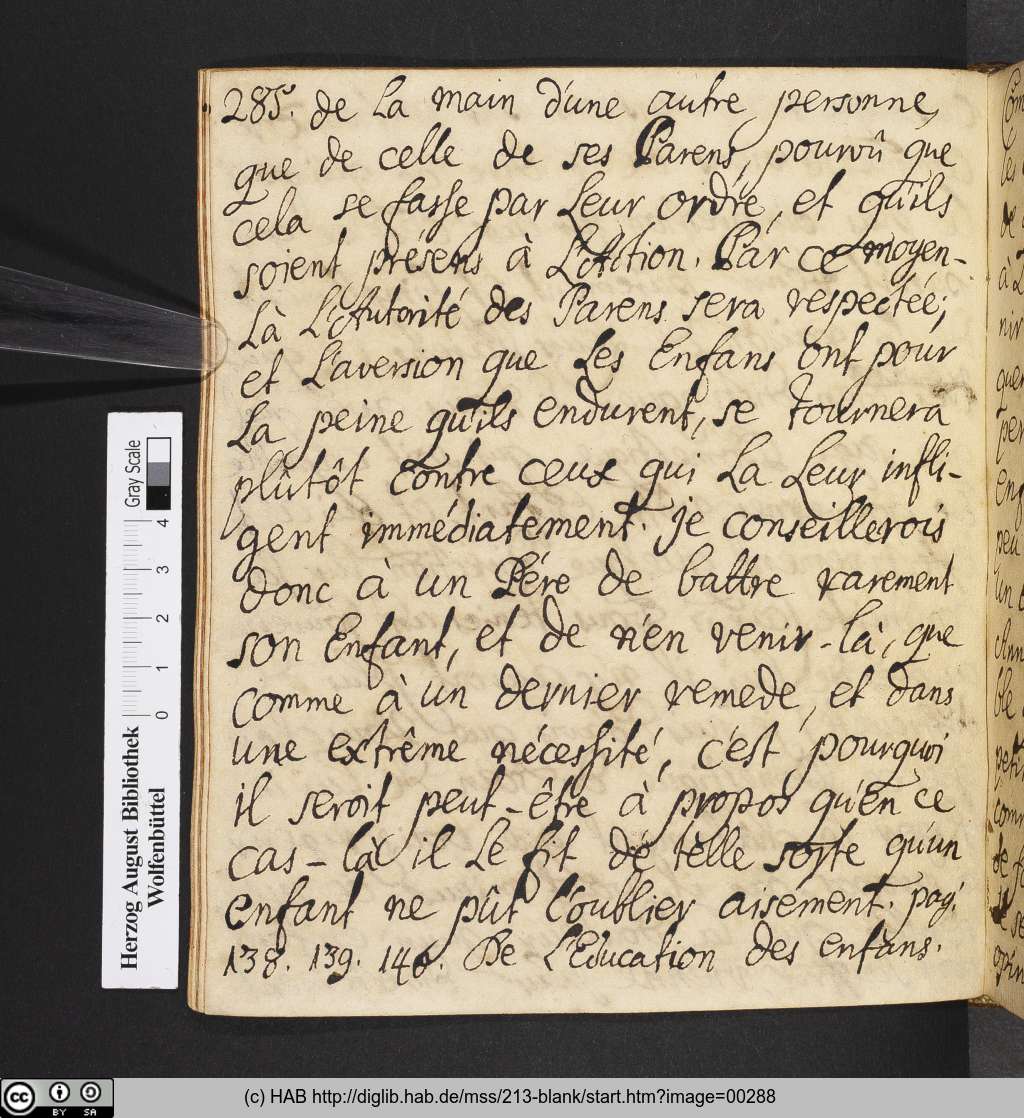 285. de la main d'une autre personne,
que de celle de ses Parens, pourvû que
cela se fasse par leur ordre, et qu'ils
soient présens à l'Action. Par ce moyen-
là l'Autorité des Parens sera respectée;
et l'aversion que les Enfans ont pour
la peine qu'ils endurent, se tournera
plûtôt contre ceux qui la leur infli-
gent immédiatement. je conseillerois
donc à un Pére de battre rarement
son Enfant, et de n'en venir-là, que
comme à un dernier remede, et dans
une extrême nécessité, c'est pourquoi
il seroit peut-être à propos qu'en ce
cas-là il le fit de telle sorte qu'un
enfant ne pût l'oublier aisément. pag.
138. 139. 140. De l'Education des enfans.
Herzog August Bibliothek
Wolfenbüttel
Gray Scale
0 1 2 3 4
cc BY SA
(c) HAB http://diglib.hab.de/mss/213-blank/start.htm?image=00288